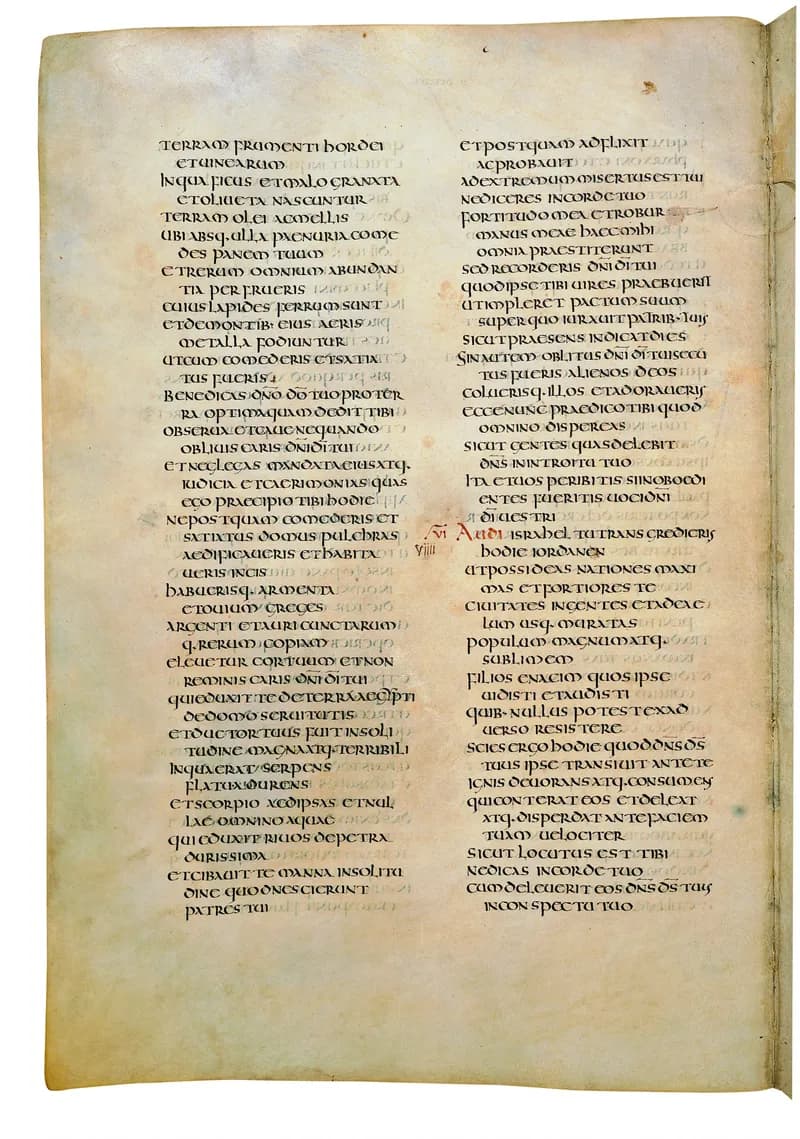 TERRAM FRUMENTI HORDEI
ET UINEARUM
IN QUA FICUS ET MALOGRANATA
ET OLIUETA NASCUNTUR
TERRAM OLEI AC MELLIS
UBI ABSQ. ULLA PAENURIA COME
DES PANEM TUUM
ET RERUM OMNIUM ABUNDAN
TIA PERFRUERIS
CUIUS LAPIDES FERRUM SUNT
ET DE MONTIB· EIUS AERIS
METALLA FODIUNTUR
UT CUM COMEDERIS ET SATIA
TUS FUERIS
BENEDICAS DN̄O DŌ TUO PRO TER
RA OPTIMA QUAM DEDIT TIBI
OBSERUA ET CAUE NEQUANDO
OBLIUISCARIS DN̄I DĪ TUI
ET NEGLEGAS MANDATA EIUS ATQ.
IUDICIA ET CAERIMONIAS QUAS
EGO PRAECIPIO TIBI HODIE
NE POSTQUAM COMEDERIS ET
SATIATUS DOMUS PULCHRAS
AEDIFICAUERIS ET HABITA
UERIS IN EIS
HABUERISQ. ARMENTA
ET OUIUM GREGES
ARGENTI ET AURI CUNCTARUM
Q. RERUM COPIAM
ELEUETUR COR TUUM ET NON
REMINISCARIS DN̄I DĪ TUI
QUI EDUXIT TE DE TERRA AEGYPTI
DE DOMO SERUITUTIS
ET DUCTOR TUUS FUIT IN SOLI
TUDINE MAGNA ATQ· TERRIBILI
IN QUA ERAT SERPENS
FLATU ADURENS
ET SCORPIO AC DIPSAS ET NUL
LAE OMNINO AQUAE
QUI EDUXIT RIUOS DE PETRA
DURISSIMA
ET CIBAUIT TE MANNA IN SOLITU
DINE QUOD NESCIERUNT
PATRES TUI
ET POSTQUAM ADFLIXIT
AC PROBAUIT
AD EXTREMUM MISERTUS EST TUI
NE DICERES IN CORDE TUO
FORTITUDO MEA ET ROBUR
MANUS MEAE HAEC MIHI
OMNIA PRAESTITERUNT
SED RECORDERIS DN̄I DĪ TUI
QUOD IPSE TIBI UIRES PRAEBUERIT
UT IMPLERET PACTUM SUUM
SUPER QUO IURAUIT PATRIB· TUIS
SICUT PRAESENS INDICAT DIES
SIN AUTEM OBLITUS DN̄I DĪ TUI SECU
TUS FUERIS ALIENOS DEOS
COLUERISQ. ILLOS ET ADORAUERIS
ECCE NUNC PRAEDICO TIBI QUOD
OMNINO DISPEREAS
SICUT GENTES QUAS DELEBIT
DN̄S IN INTROITU TUO
ITA ET UOS PERIBITIS SI INOBOEDI
ENTES FUERITIS UOCI DN̄I
DĪ UESTRI
VI AUDI ISRAHEL TU TRANSGREDIERIS
VIIII HODIE IORDANEN
UT POSSIDEAS NATIONES MAXI
MAS ET FORTIORES TE
CIUITATES INGENTES ET AD CAE
LUM USQ. MURATAS
POPULUM MAGNUM ATQ.
SUBLIMEM
FILIOS ENACIM QUOS IPSE
UIDISTI ET AUDISTI
QUIB· NULLUS POTEST EX AD
UERSO RESISTERE
SCIES ERGO HODIE QUOD DN̄S DS̄
TUUS IPSE TRANSIUIT ANTE TE
IGNIS DEUORANS ATQ. CONSUMENS
QUI CONTERAT EOS ET DELEAT
ATQ. DISPERDAT ANTE FACIEM
TUAM UELOCITER
SICUT LOCUTUS EST TIBI
NE DICAS IN CORDE TUO
CUM DELEUERIT EOS DN̄S DS̄ TUUS
IN CONSPECTU TUO